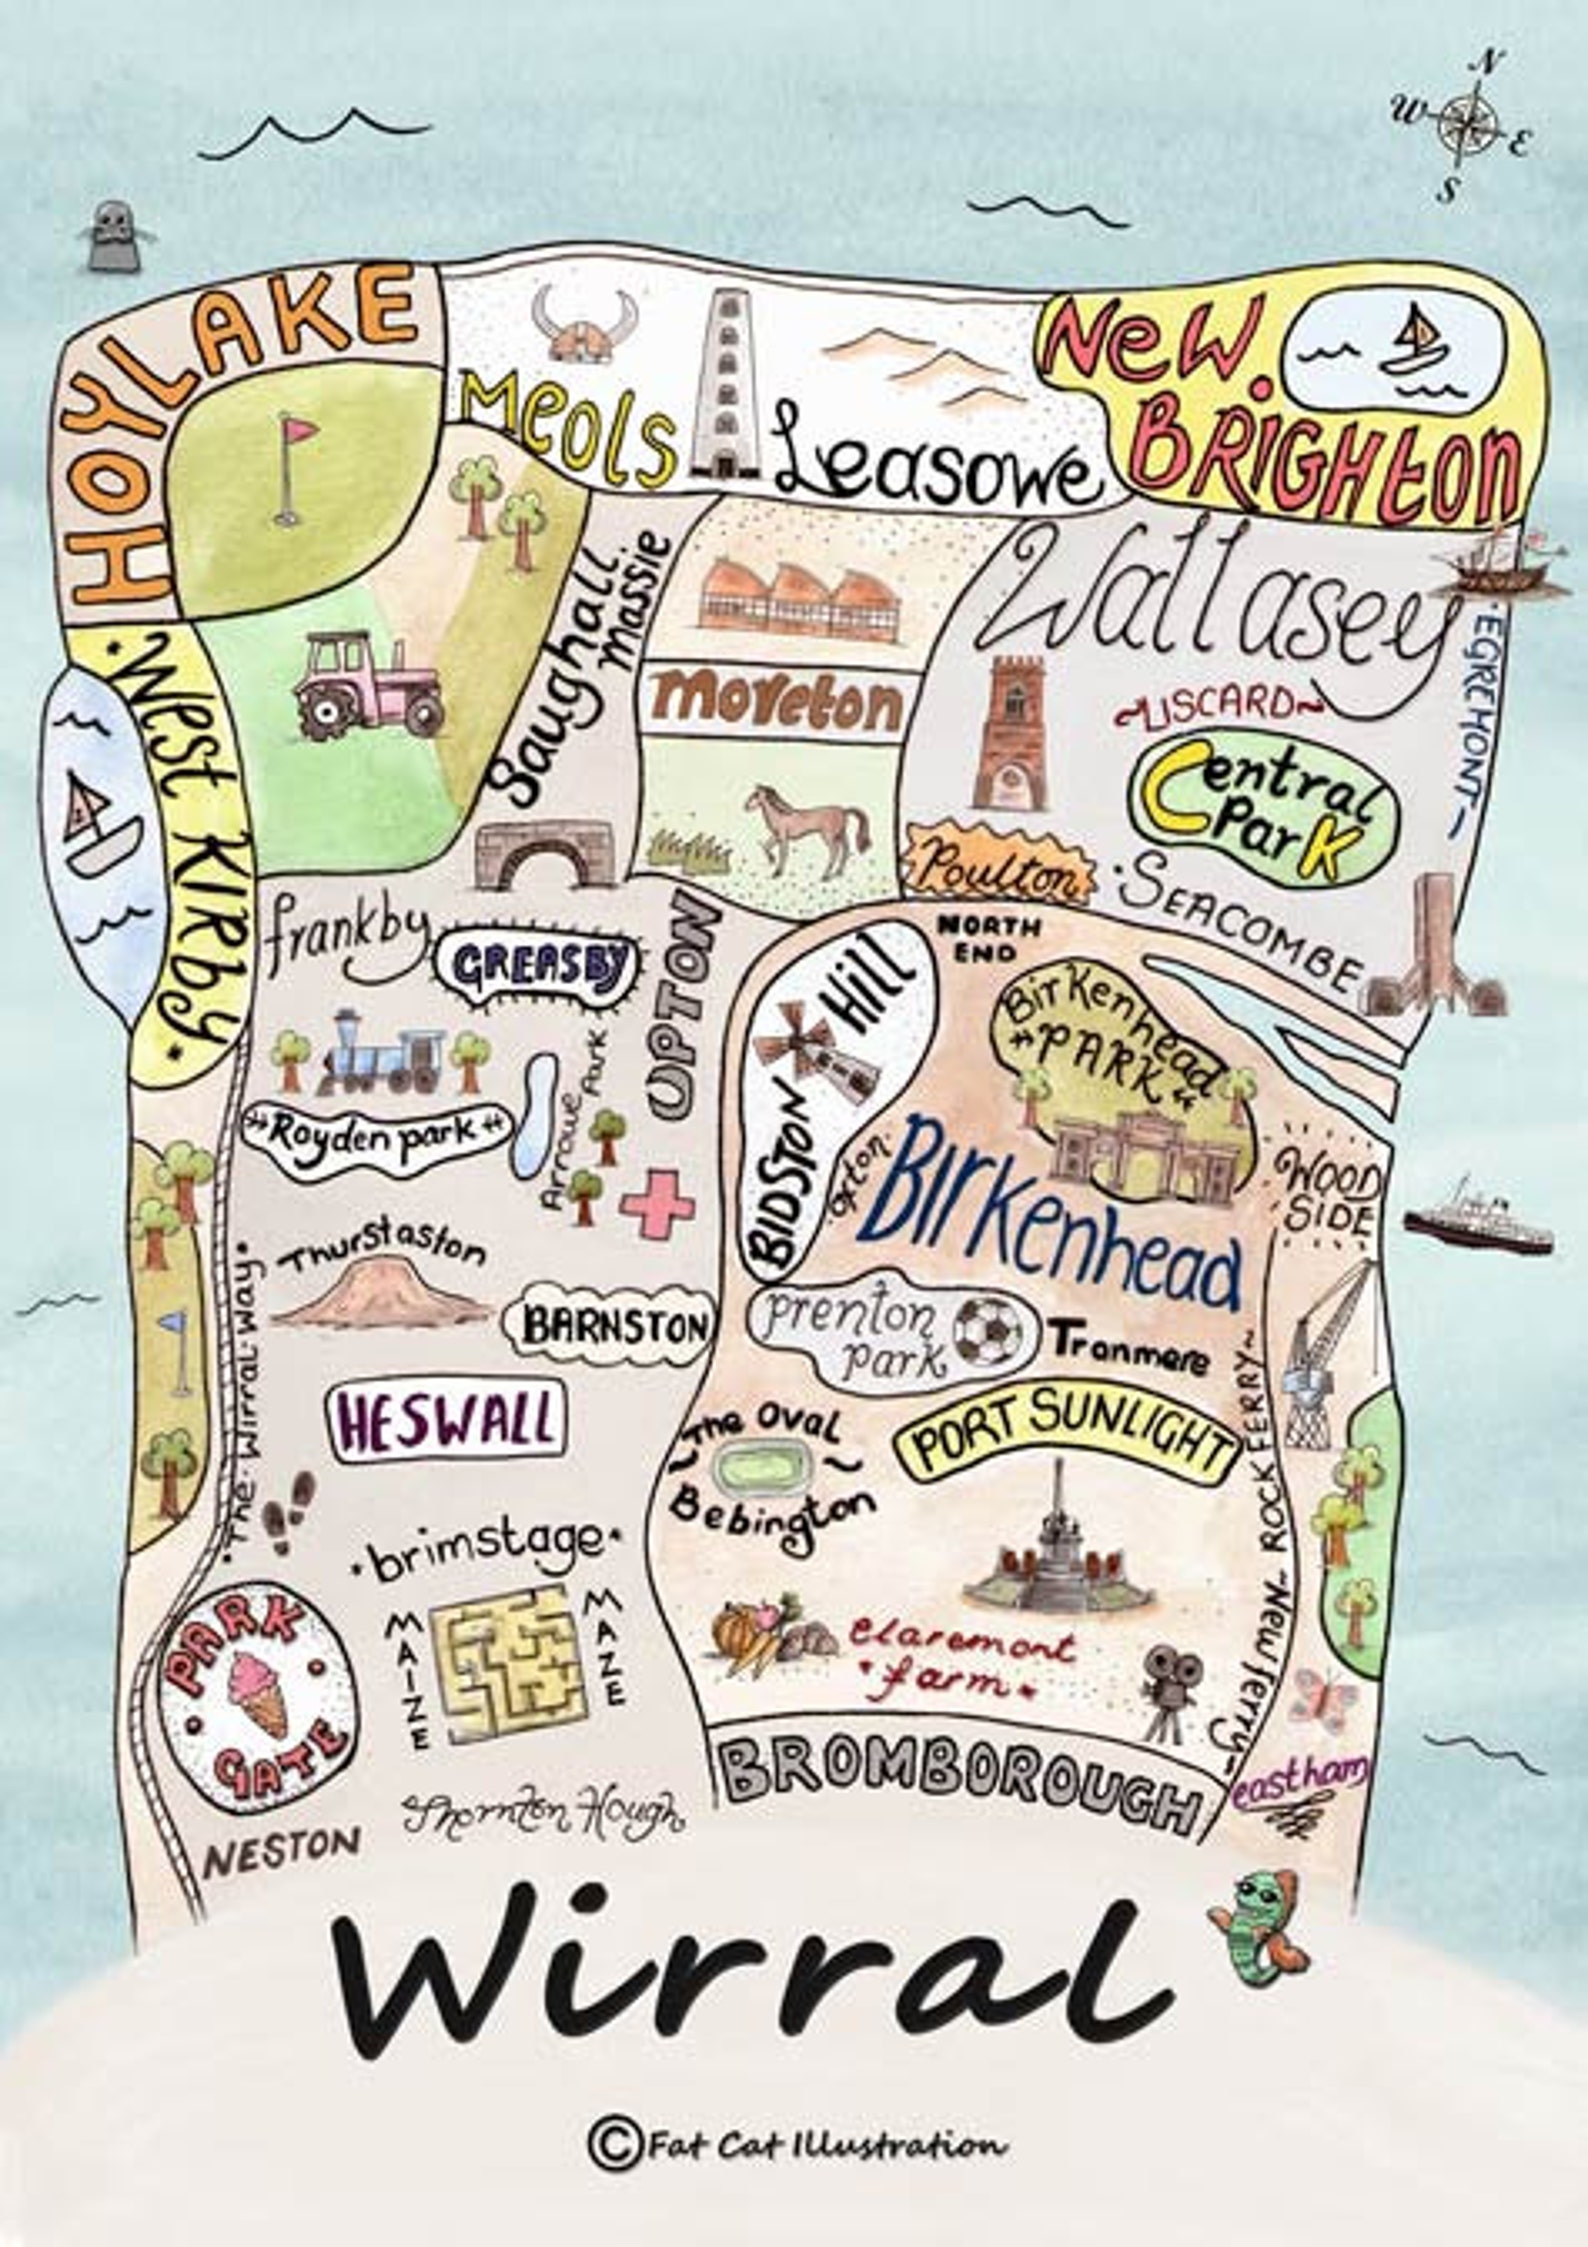 N
W
E
S
HOYLAKE
Meols
Leasowe
New
BRiGHton
Saughall
Massie
moreton
Wallasey
EGREMONT
~LISCARD~
Central
ParK
West Kirby
Poulton
SEACOMBE
frankby
GREASBY
UPTON
NORTH
END
BIDSTON Hill
BirKenhead
PARK
Arrowe Park
Royden park
oxton
BIrKenhead
WOOD
SIDE
Thurstaston
BARNSTON
prenton
park
Tranmere
The Wirral Way
HESWALL
The Oval
Bebington
PORT SUNLIGHT
ROCK FERRY~
brimstage
MAIZE
MAZE
PARK
GATE
claremont
farm
New ferry
BROMBOROUGH
eastham
Thornton Hough
NESTON
Wirral
©Fat Cat Illustration